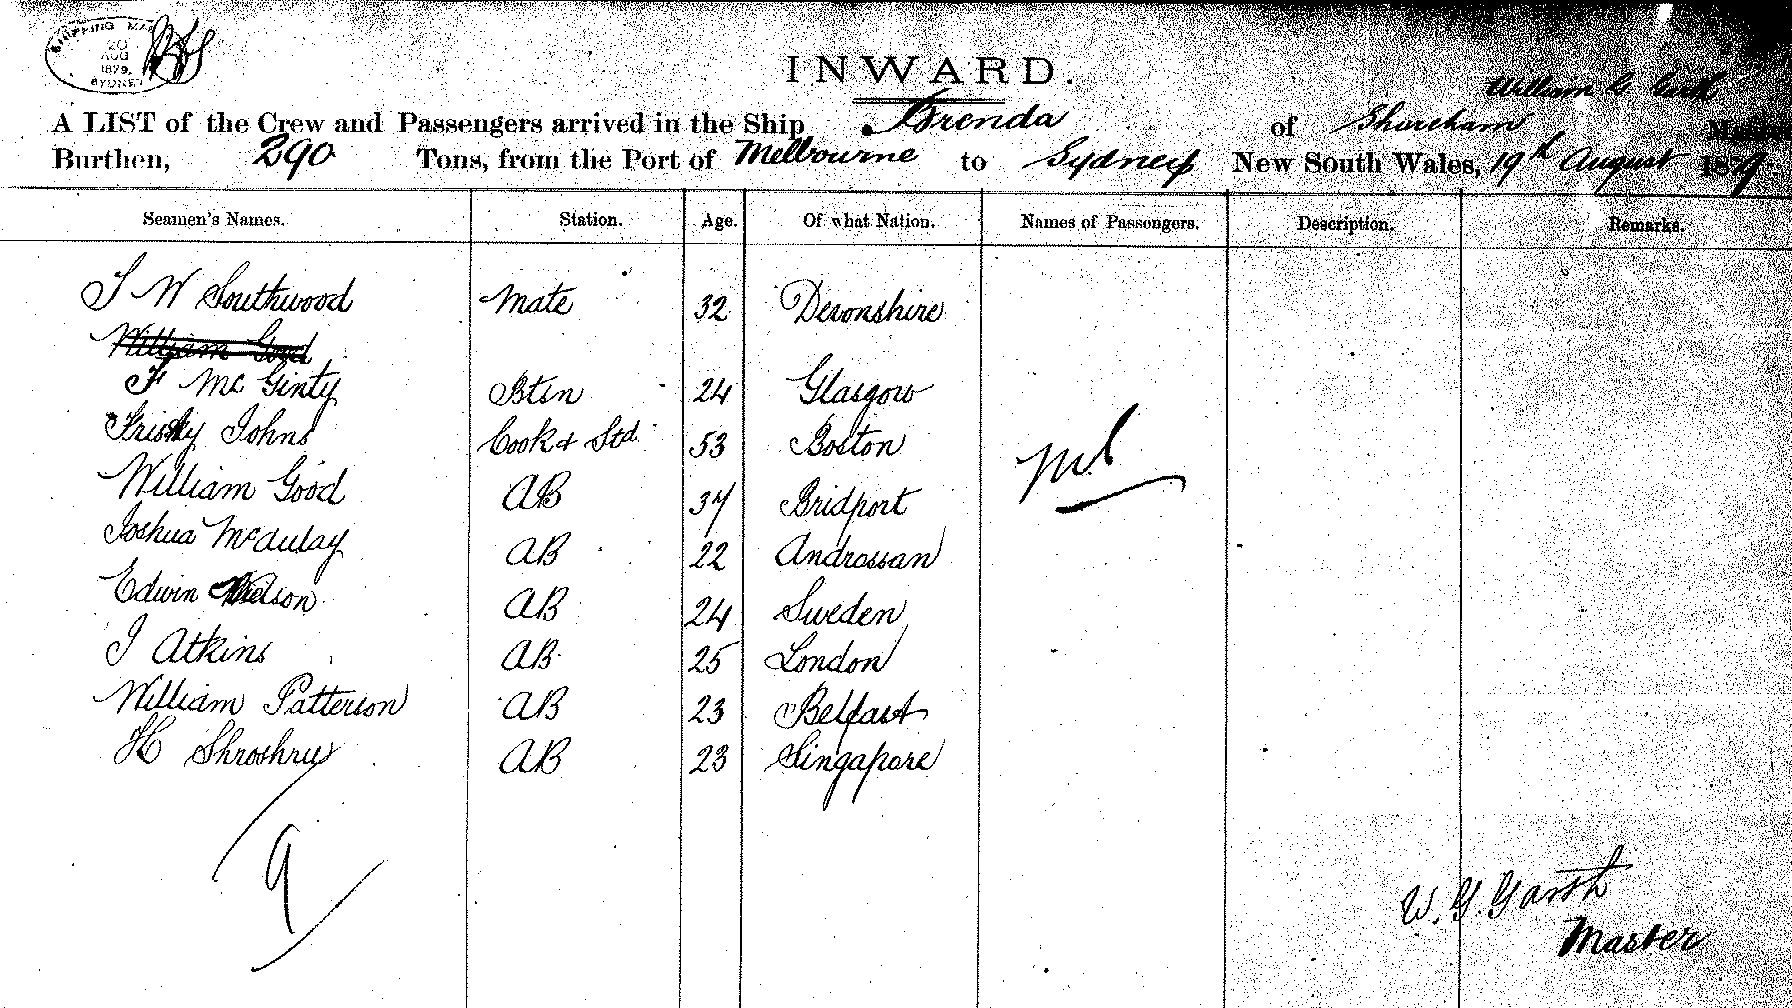 SHIPPING MAS
20
AUG
1879.
SYDNEY
INWARD.
William G
A LIST of the Crew and Passengers arrived in the Ship Brenda of Shoreham
Burthen, 290 Tons, from the Port of Melbourne to Sydney New South Wales, 19th August 1879
Seamen's Names. Station. Age. Of what Nation. Names of Passengers. Description. Remarks.
W Southwood Mate 32 Devonshire
William Good
F Mc Ginty Btsn 24 Glasgow
Johns Cook & Std. 53 Boston
William Good AB 37 Bridport
Joshua McAulay AB 22 Androssan
Edwin AB 24 Sweden
J Atkins AB 25 London
William Patterson AB 23 Belfast
H AB 23 Singapore
Nil
9
W. G. Garth
Master